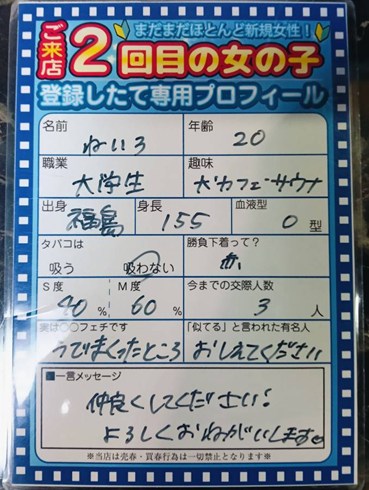 まだまだほとんど新規女性！
ご来店2回目の女の子
登録したて専用プロフィール
名前 ねいろ 年齢 20
職業 大学生 趣味 カフェ・サウナ
出身 福島 身長 155 血液型 O型
タバコは 吸う 吸わない 勝負下着って？ 赤
S度 40% M度 60% 今までの交際人数 3人
実は○○フェチです うでまくったところ 「似てる」と言われた有名人 おしえてください
■一言メッセージ
仲良くしてください！
よろしくおねがいします
※当店は売春・買春行為は一切禁止となります※